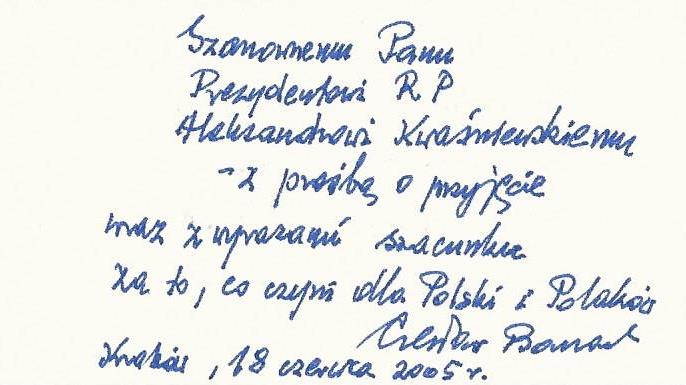 Szanownemu Panu
Prezydentowi RP
Aleksandrowi Kwaśniewskiemu
- z prośbą o przyjęcie
wraz z wyrazami szacunku
za to, co czyni dla Polski i Polaków
Czesław Banach
Kraków, 18 czerwca 2005 r.